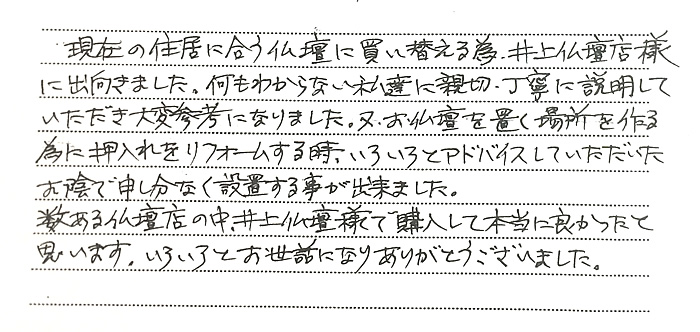 現在の住居に合う仏壇に買い替える為、井上仏壇店様
に出向きました。何もわからない私達に親切・丁寧に説明して
いただき大変参考になりました。又、お仏壇を置く場所を作る
為に押入れをリフォームする時、いろいろとアドバイスしていただいた
お陰で申し分なく設置する事が出来ました。
数ある仏壇店の中、井上仏壇様で購入して本当に良かったと
思います。いろいろとお世話になりありがとうございました。